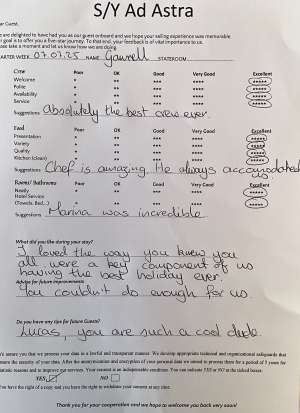 S/Y Ad Astra
Dear Guest,
We are delighted to have had you as our guest onboard and we hope your sailing experience was memorable.
Our goal is to offer you a five-star journey. To that end, your feedback is of vital importance to us.
Please take a moment and let us know how are doing.
CHARTER WEEK 07.07.25 NAME STATEROOM
Crew Poor OK Good Very Good Excellent
Welcome * ** *** **** *****
Polite * ** *** **** *****
Availability * ** *** **** *****
Service * ** *** **** *****
Suggestions Absolutely the best crew ever.
Food Poor OK Good Very Good Excellent
Presentation * ** *** **** *****
Variety * ** *** **** *****
Quality * ** *** **** *****
Kitchen (clean) * ** *** **** *****
Suggestions Chef is amazing. He always accomodated us
Rooms/ Bathrooms Poor OK Good Very Good Excellent
Ready * ** *** **** *****
Hotel Service
(Towels, Bed...) * ** *** **** *****
Suggestions Marina was incredible
What did you like during your stay?
I loved the way you knew you
all were a key component of us
having the best holiday ever.
Advise for future improvements
You couldn't do enough for us.
Do you have any tips for future Guests?
Lucas, you are such a cool dude.
We assure you that we process your data in a lawful and transparent manner. We develop appropriate technical and organizational safeguards that
ensure the security of your data. After the anonymization and encryption of your personal data we intend to process them for a period of 5 years for
statistic reasons and to improve our services. Your consent is an indisputable condition. You can indicate YES or NO at the ticked boxes.
YES NO
You have the right of access and you have the right to withdraw your consent at any time.
Thank you for your cooperation and we hope to welcome you back very soon!